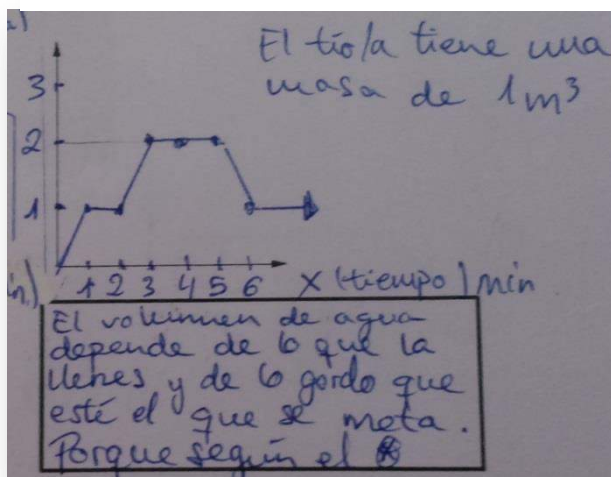 a)
El tío/a tiene una
masa de 1m³
3
2
1
1 2 3 4 5 6 X (tiempo) min
in.)
El volumnen de agua
depende de lo que la
llenes y de lo gordo que
esté el que se meta.
Porque según el